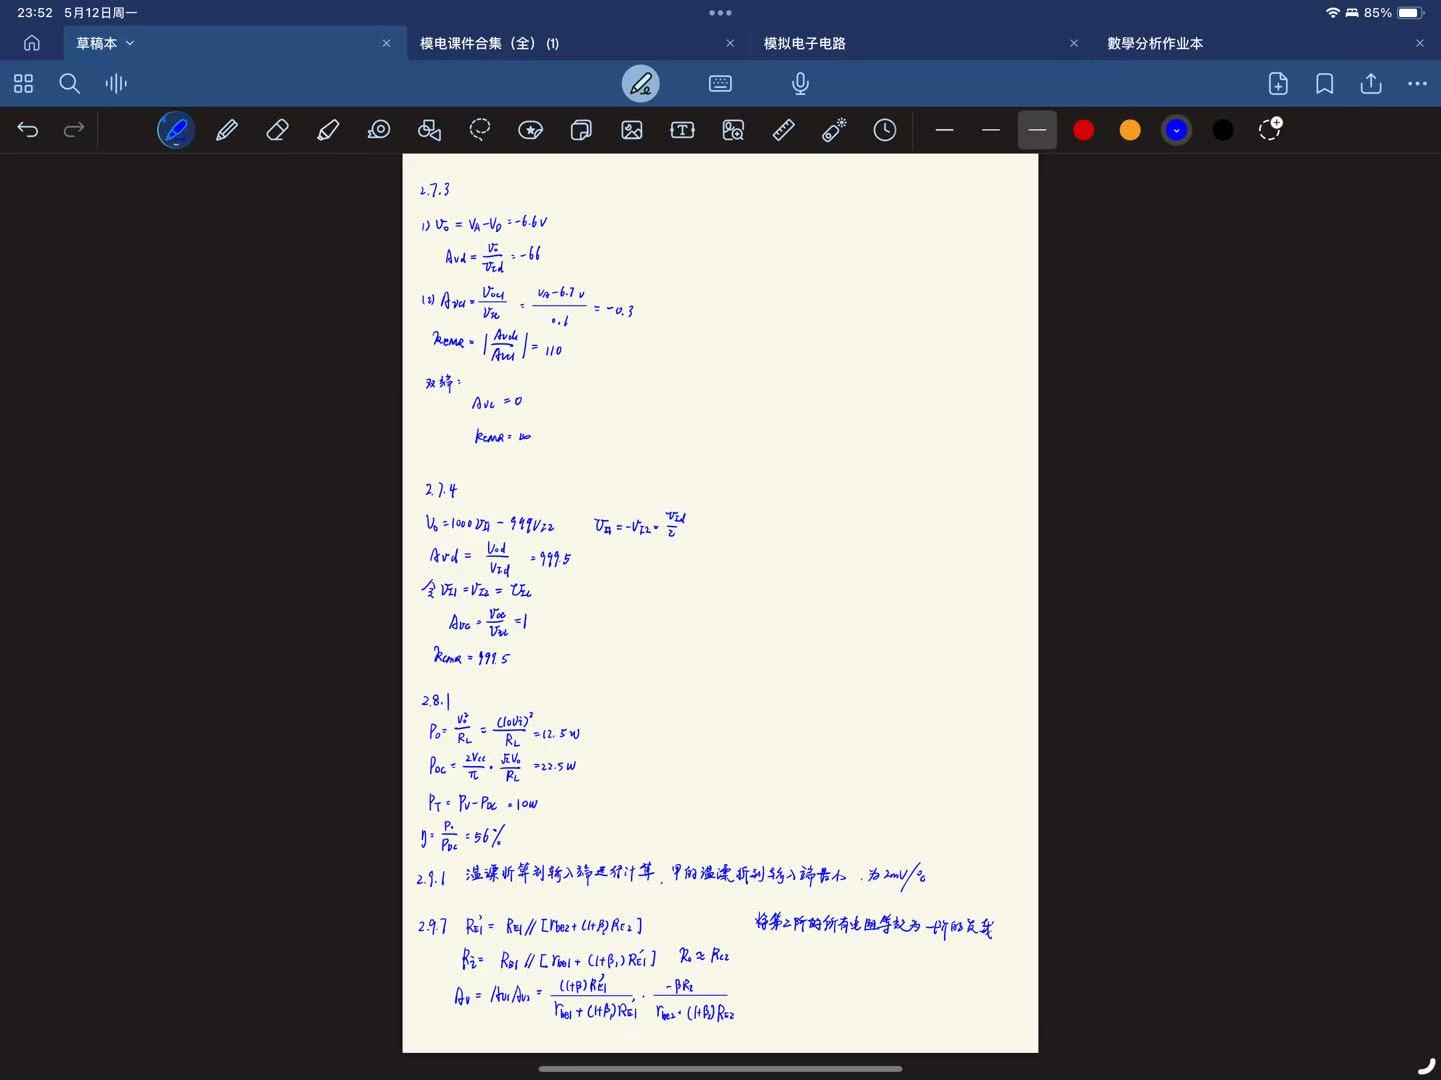 23:52 5月12日周一
85%
草稿本
模电课件合集（全） (1)
模拟电子电路
數學分析作业本
2.7.3
1) V₀ = V_A - V_D = -6.6V
Avd = V₀/V_Id = -66
(2) Avc1 = Voc1/V_Ic = (V_A - 6.7V)/0.6 = -0.3
K_CMR = |Avd1/Avc1| = 110
双端:
Avc = 0
K_CMR = ∞
2.7.4
V₀ = 1000V_I1 - 999V_I2 V_I1 = -V_I2 = V_Id/2
Avd = Vod/V_Id = 999.5
令 V_I1 = V_I2 = V_Ic
Avc = Voc/V_Ic = 1
K_CMR = 999.5
2.8.1
P₀ = V₀²/R_L = (10Vi)²/R_L = 12.5W
P_DC = 2Vcc/π · √2V₀/R_L = 22.5W
P_T = P_V - P_DC = 10W
η = P₀/P_DC = 56%
2.9.1 温漂折算到输入端进行计算, 甲的温漂折到输入端最小, 为2mV/℃
2.9.7 R_E1' = R_E1 // [r_be2 + (1+β₂)R_E2] 将第二阶的所有电阻等效为一阶的负载
Ri = R_B1 // [r_be1 + (1+β₁)R_E1'] R₀ ≈ R_C2
Av = Av1Av2 = (1+β)R_E1'/(r_be1 + (1+β₁)R_E1') · -βR₂/(r_be2 + (1+β₂)R_E2)